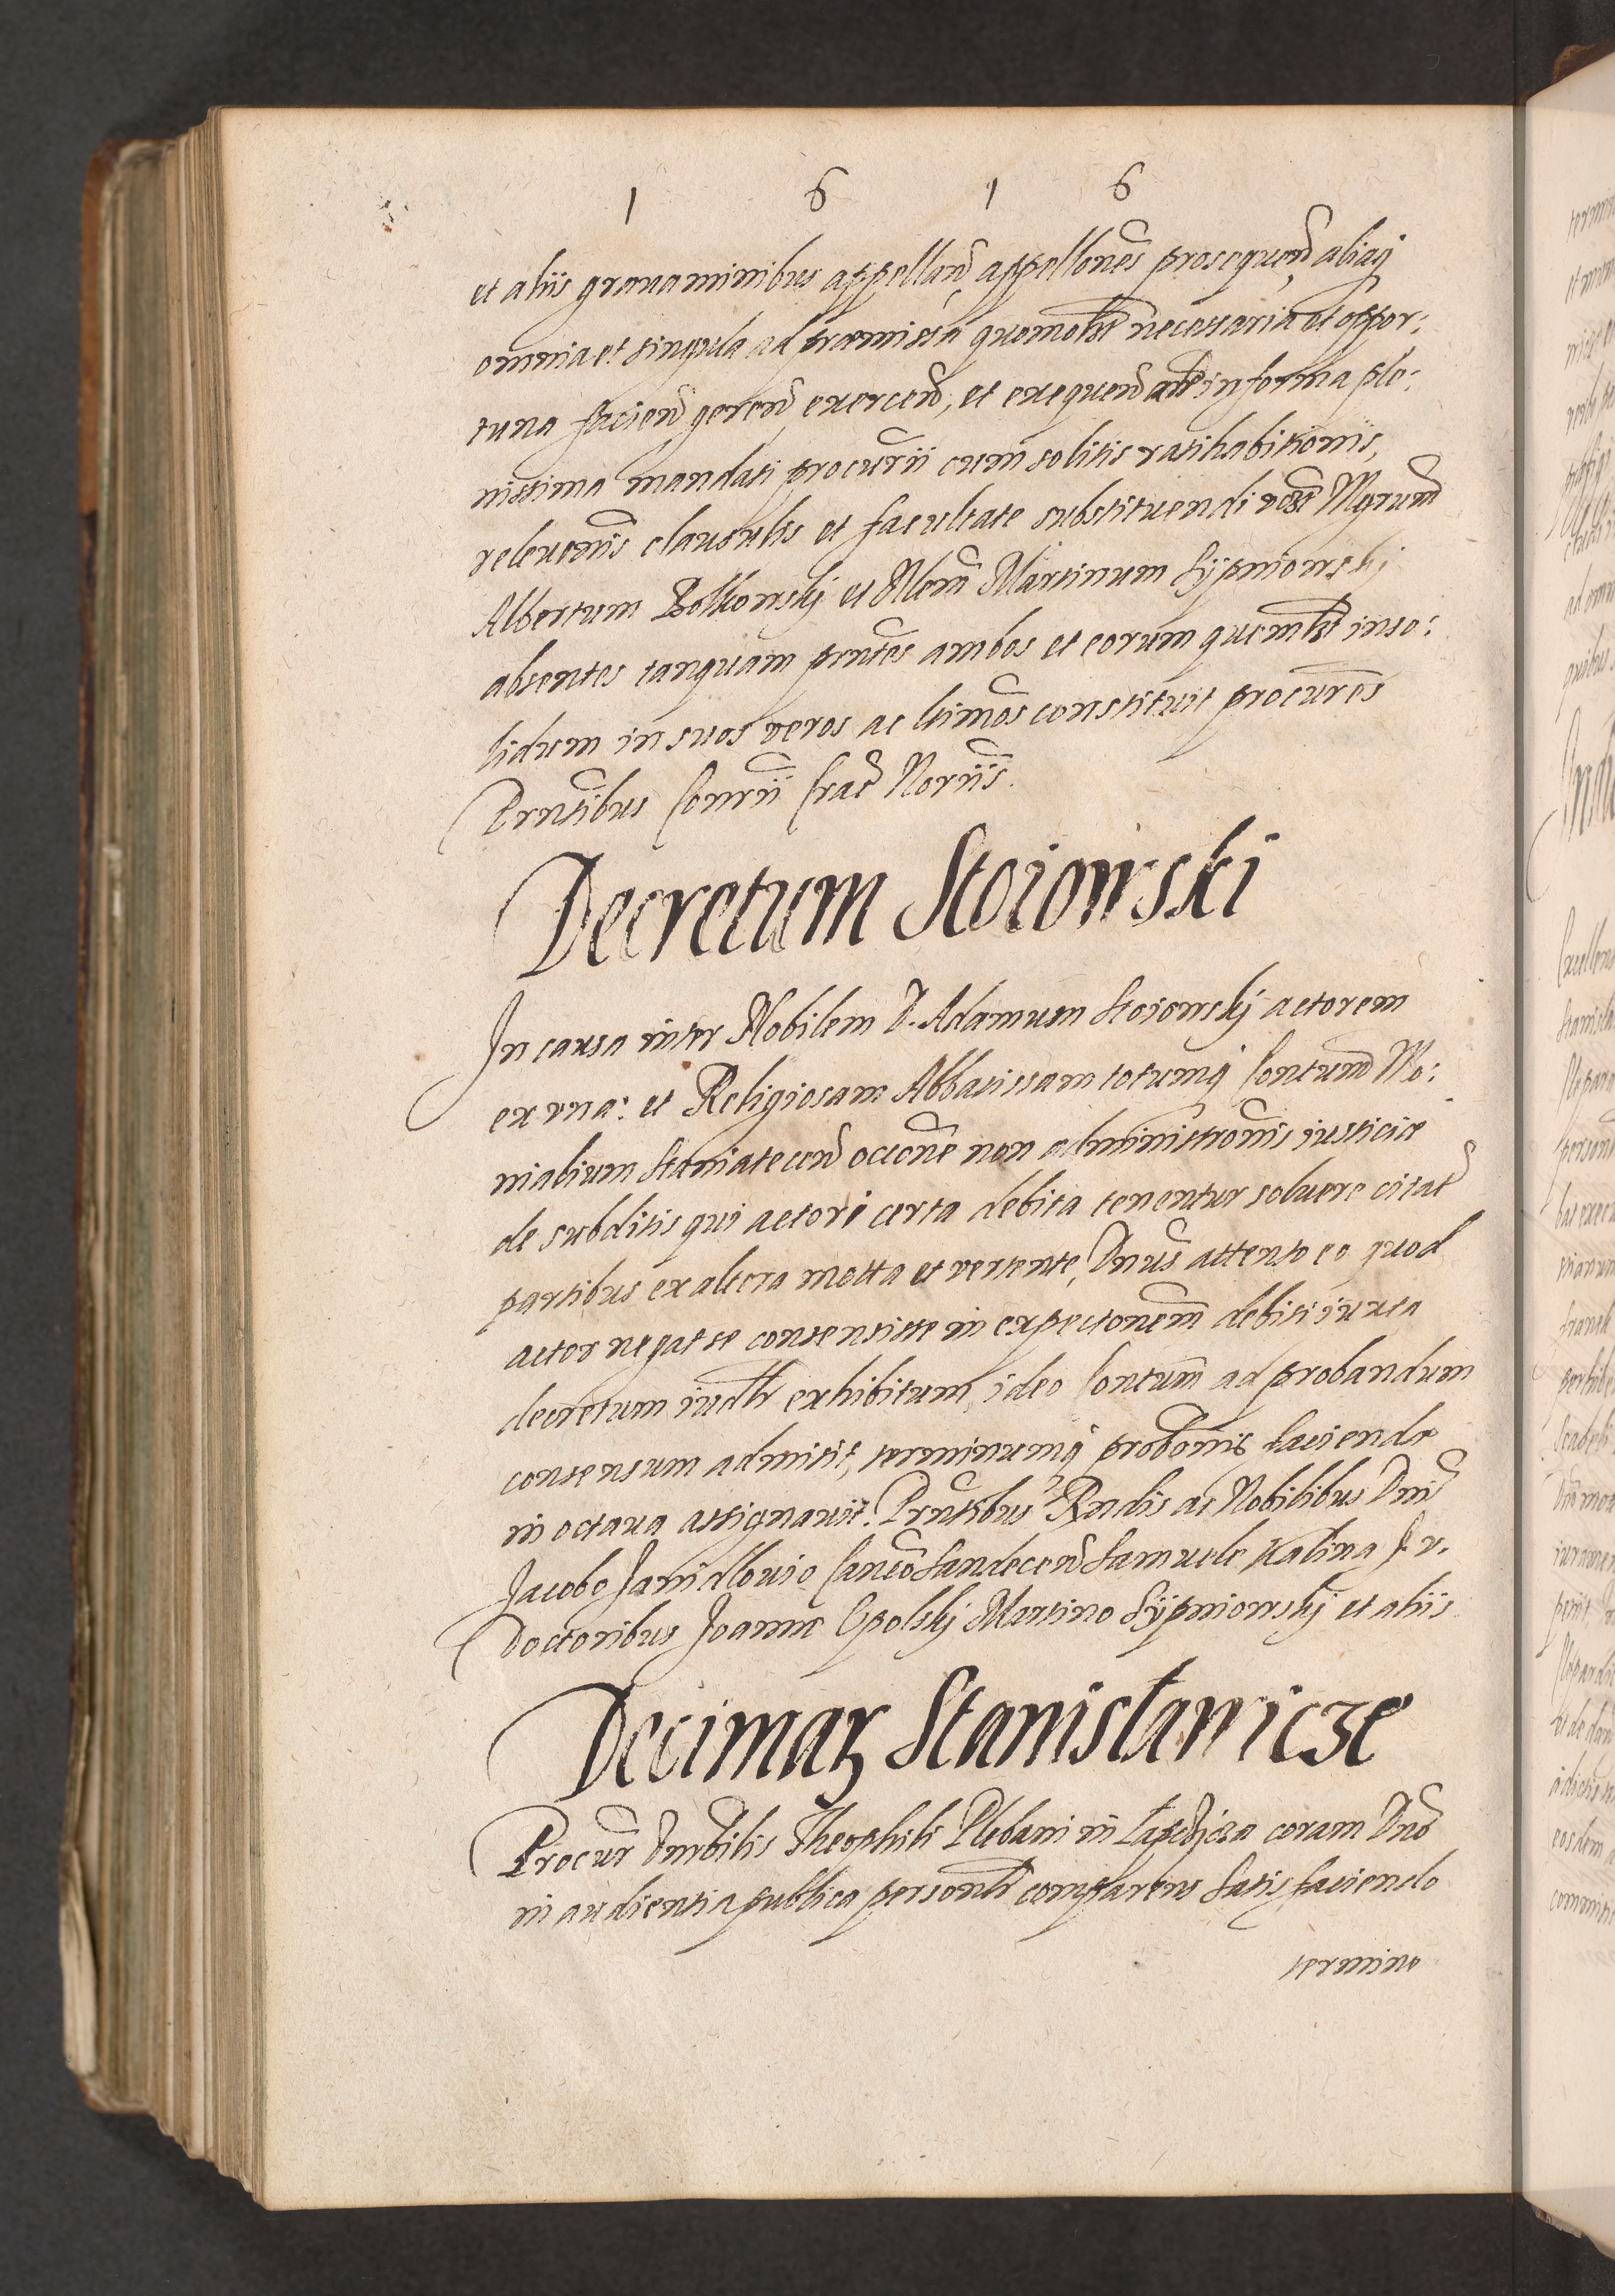 1 6 1 6
et aliis grauaminibus appelland appellones prosequend aliaq
omnia et singula ad praemissa quomolt necessaria et oppor:
tuna faciend gerend exercend, et exequend in forma ple:
nissima mandati procurii cum solitis ratihabitionis,
releuonis clausulis et facultate substituendi Mgrum
Albertum Bolkowskj et Nlem Martinum Sÿpniowskj
absentes tanquam pntes ambos et eorum quemlt inso:
lidum in suos veros ac ltimos constituit procures
Prntibus Conrii Crac Noriis.
Decretum Stoiowski
In causa inter Nobilem D. Adamum Stoiowskj actorem
ex vna: et Religiosam Abbatissam totumq Contum Mo:
nialium Staniatecen occone non administronis iusticiae
de subditis qui actori certa debita tenentur soluere citat
partibus ex altera motta et vertente, Dnus attento eo quod
actor negat se consensisse in expectonem debiti iuxta
decretum iudlr exhibitum, ideo Contum ad probandum
consensum admisit, terminumq probonis faciendae
in octaua assignauit. Prntibus Rndis ac Nobilibus Dnis
Jacobo Janidlouio Canco Sandecen Samuele Kalina J. v.
Doctoribus Joanne Opolskj Martino Sÿpniowskj et aliis
Decimar Stanisławicze
Procur Dnrbilis Theophili Plebani in Łapczyca coram Dno
in audientia publica personlr comparens satisfaciendo
termino